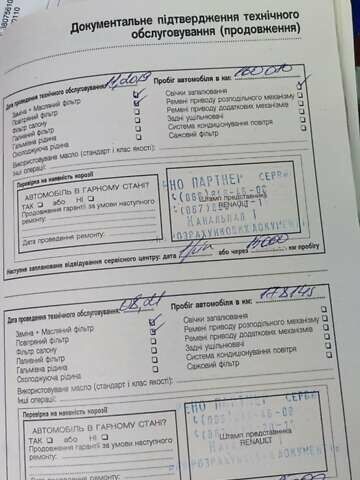 Документальне підтвердження технічного
обслуговування (продовження)
Дата проведення технічного обслуговування:
Пробіг автомобіля в км:
Заміна • Масляний фільтр
Повітряний фільтр
Фільтр салону
Паливний фільтр
Гальмівна рідина
Охолоджуюча рідина
Свічки запалювання
Ремені приводу розподільного механізму
Ремені приводу додаткових механізмів
Задні ущільнювачі
Система кондиціонування повітря
Сажовий фільтр
Використовуване масло (стандарт і клас якості):
Інші операції:
Перевірка на наявність корозії
АВТОМОБІЛЬ В ГАРНОМУ СТАНІ?
ТАК або НІ
Продовження гарантії за умови наступного
ремонту:
Дата проведення ремонту:
НО ПАРТНЕР СЕРВІ
Штамп представника
RENAULT
Канальная 1
Наступне заплановане відвідування сервісного центру: дата або через 15000 км пробігу
Дата проведення технічного обслуговування: 08,21
Пробіг автомобіля в км:
Заміна • Масляний фільтр
Повітряний фільтр
Фільтр салону
Паливний фільтр
Гальмівна рідина
Охолоджуюча рідина
Свічки запалювання
Ремені приводу розподільного механізму
Ремені приводу додаткових механізмів
Задні ущільнювачі
Система кондиціонування повітря
Сажовий фільтр
Використовуване масло (стандарт і клас якості):
Інші операції:
Перевірка на наявність корозії
АВТОМОБІЛЬ В ГАРНОМУ СТАНІ?
ТАК або НІ
Продовження гарантії за умови наступного
ремонту:
Дата проведення ремонту:
НО ПАРТНЕР СЕРВ
Штамп представника
RENAULT